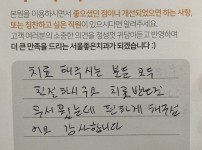 본원을 이용하시면서 좋으셨던 점이나 개선되었으면 하는 사항,
또는 칭찬하고 싶은 직원이 있으시다면 알려주세요.
고객 여러분의 소중한 의견을 정성껏 귀담아듣고 반영하여
더 큰 만족을 드리는 서울좋은치과가 되겠습니다 :)
치료 해주시는 분들 모두
친절하시구요 치료받는건
무서웠는데 편하게 해주셨
어요 감사합니다